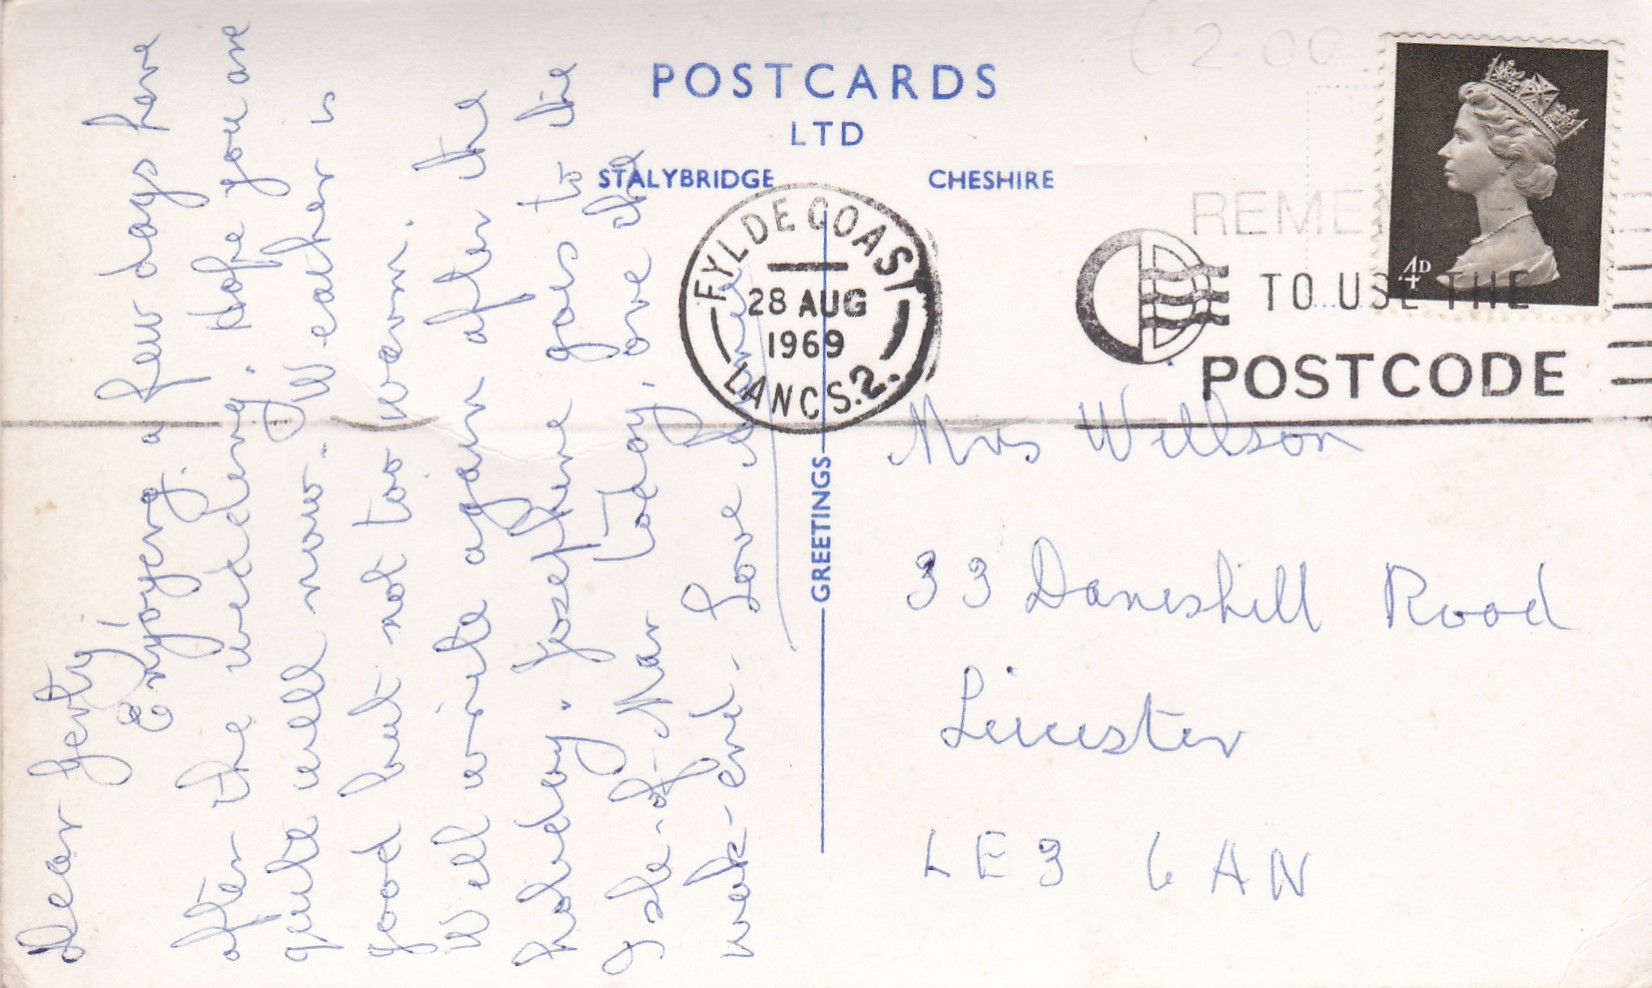 POSTCARDS
LTD
STALYBRIDGE CHESHIRE
GREETINGS
FYLDE COAST
28 AUG
1969
LANCS. 2.
REME
TO USE THE
POSTCODE
4D
2.00
Dear Gerty,
Enjoyeng a few days here
after the wedding. Hope you are
quite well now. Weather is
good but not too warm.
Will write again after the
holiday. Josephine goes to the
Isle-of-Man today, ove the
week-end. Love
Mrs Willson
33 Daneshill Road
Leicester
LE3 6AN